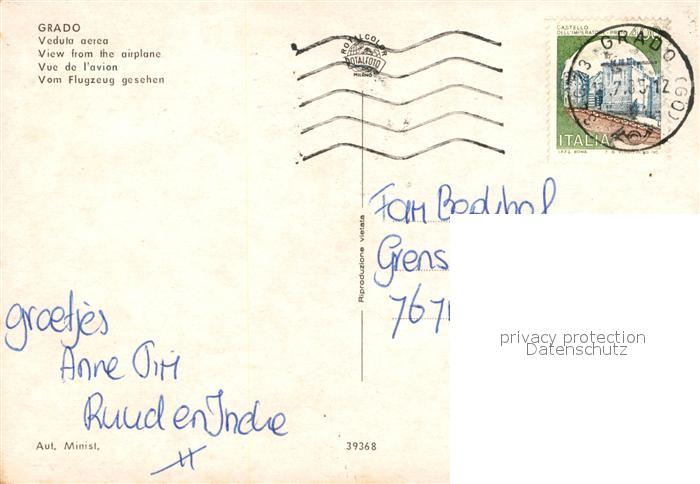 GRADO
Veduta aerea
View from the airplane
Vue de l'avion
Vom Flugzeug gesehen
ROTALCOLOR
ROTALFOTO
MILANO
CASTELLO
DELL'IMPERATORE - PR
GRADO (GO)
ITALIA
I.P.Z.S. ROMA
Riproduzione vietata
Fam
Grens
privacy protection
Datenschutz
groetjes
Anne
Ruud en
Aut. Minist.
39368